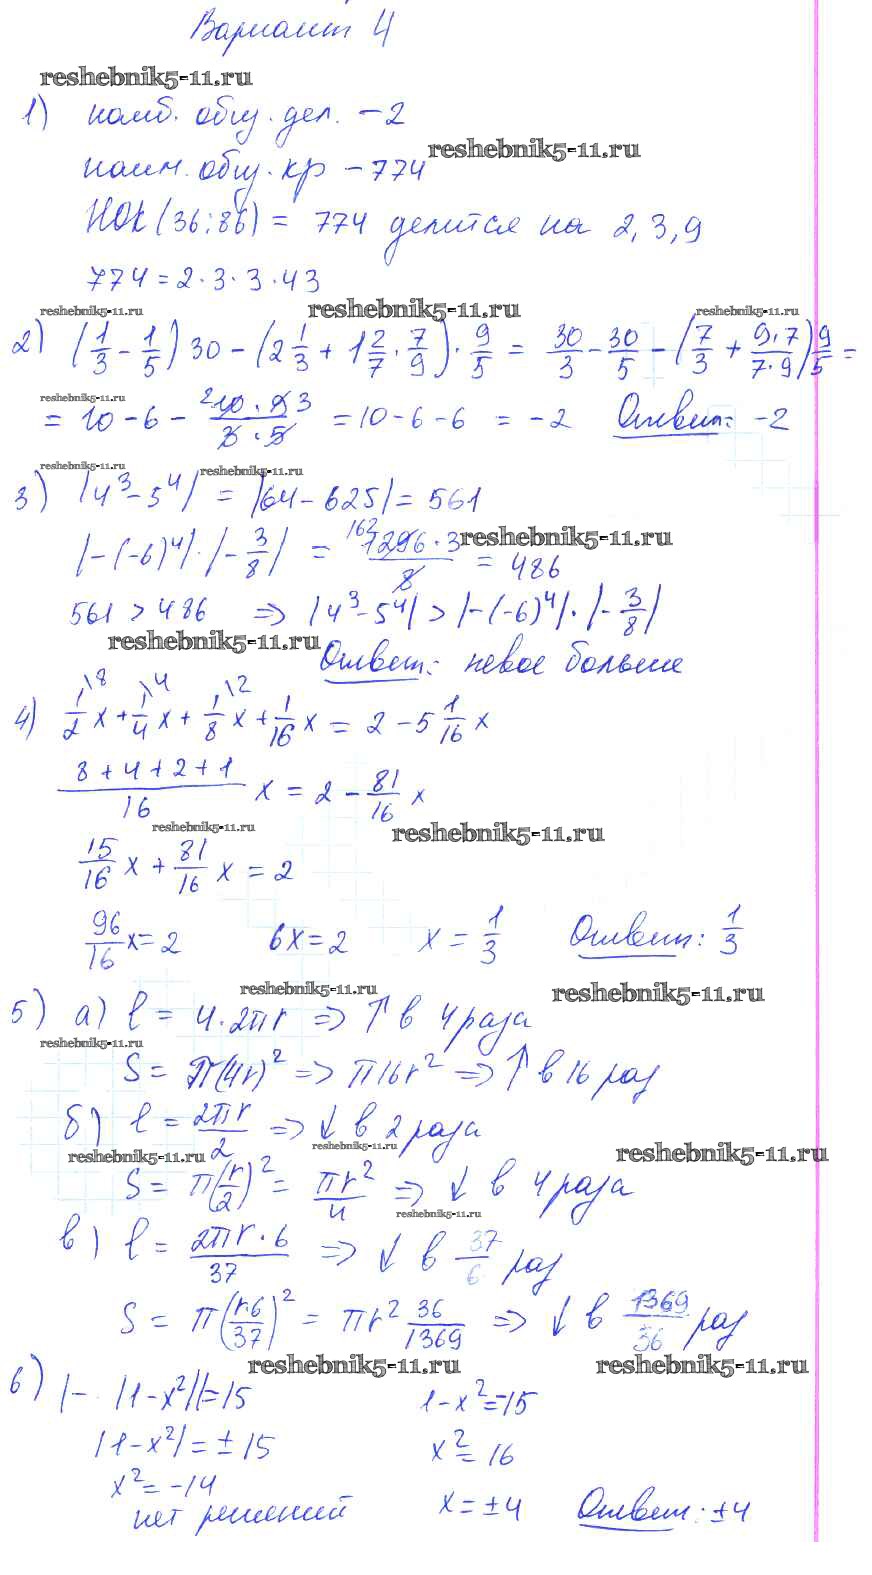 Вариант 4
reshebnik5-11.ru
1) наиб. общ. дел. – 2
reshebnik5-11.ru
наим. общ. кр – 774
НОК (36; 86) = 774 делится на 2, 3, 9
774 = 2 · 3 · 3 · 43
reshebnik5-11.ru reshebnik5-11.ru reshebnik5-11.ru
2) (1/3 – 1/5) 30 – (2 1/3 + 1 2/7 · 7/9) · 9/5 = 30/3 – 30/5 – (7/3 + 9·7/7·9) 9/5 =
reshebnik5-11.ru
= 10 – 6 – 2 10 · 9 3 / 3 · 5 = 10 – 6 – 6 = –2 Ответ: –2
reshebnik5-11.ru reshebnik5-11.ru
3) |4³ – 5⁴| = |64 – 625| = 561
|–(–6)⁴| · |–3/8| = 162 1296 · 3 / 8 = 486
reshebnik5-11.ru
561 > 486 => |4³ – 5⁴| > |–(–6)⁴| · |–3/8|
reshebnik5-11.ru
Ответ: левое больше
4) 1\8/2 x + 1\4/4 x + 1\2/8 x + 1/16 x = 2 – 5 1/16 x
8 + 4 + 2 + 1 / 16 x = 2 – 81/16 x
reshebnik5-11.ru reshebnik5-11.ru
15/16 x + 81/16 x = 2
96/16 x = 2 6x = 2 x = 1/3 Ответ: 1/3
reshebnik5-11.ru reshebnik5-11.ru
5) а) l = 4 · 2πr => ↑ в 4 раза
reshebnik5-11.ru
S = π(4r)² => π16r² => ↑ в 16 раз
б) l = 2πr/2 => ↓ в 2 раза
reshebnik5-11.ru reshebnik5-11.ru reshebnik5-11.ru
S = π(r/2)² = πr²/4 => ↓ в 4 раза
reshebnik5-11.ru
в) l = 2πr · 6 / 37 => ↓ в 37/6 раз
S = π(r·6/37)² = πr² 36/1369 => ↓ в 1369/36 раз
reshebnik5-11.ru reshebnik5-11.ru
6) |– |1 – x²|| = 15 1 – x² = –15
|1 – x²| = ± 15 x² = 16
x² = –14
нет решений x = ±4 Ответ: ±4